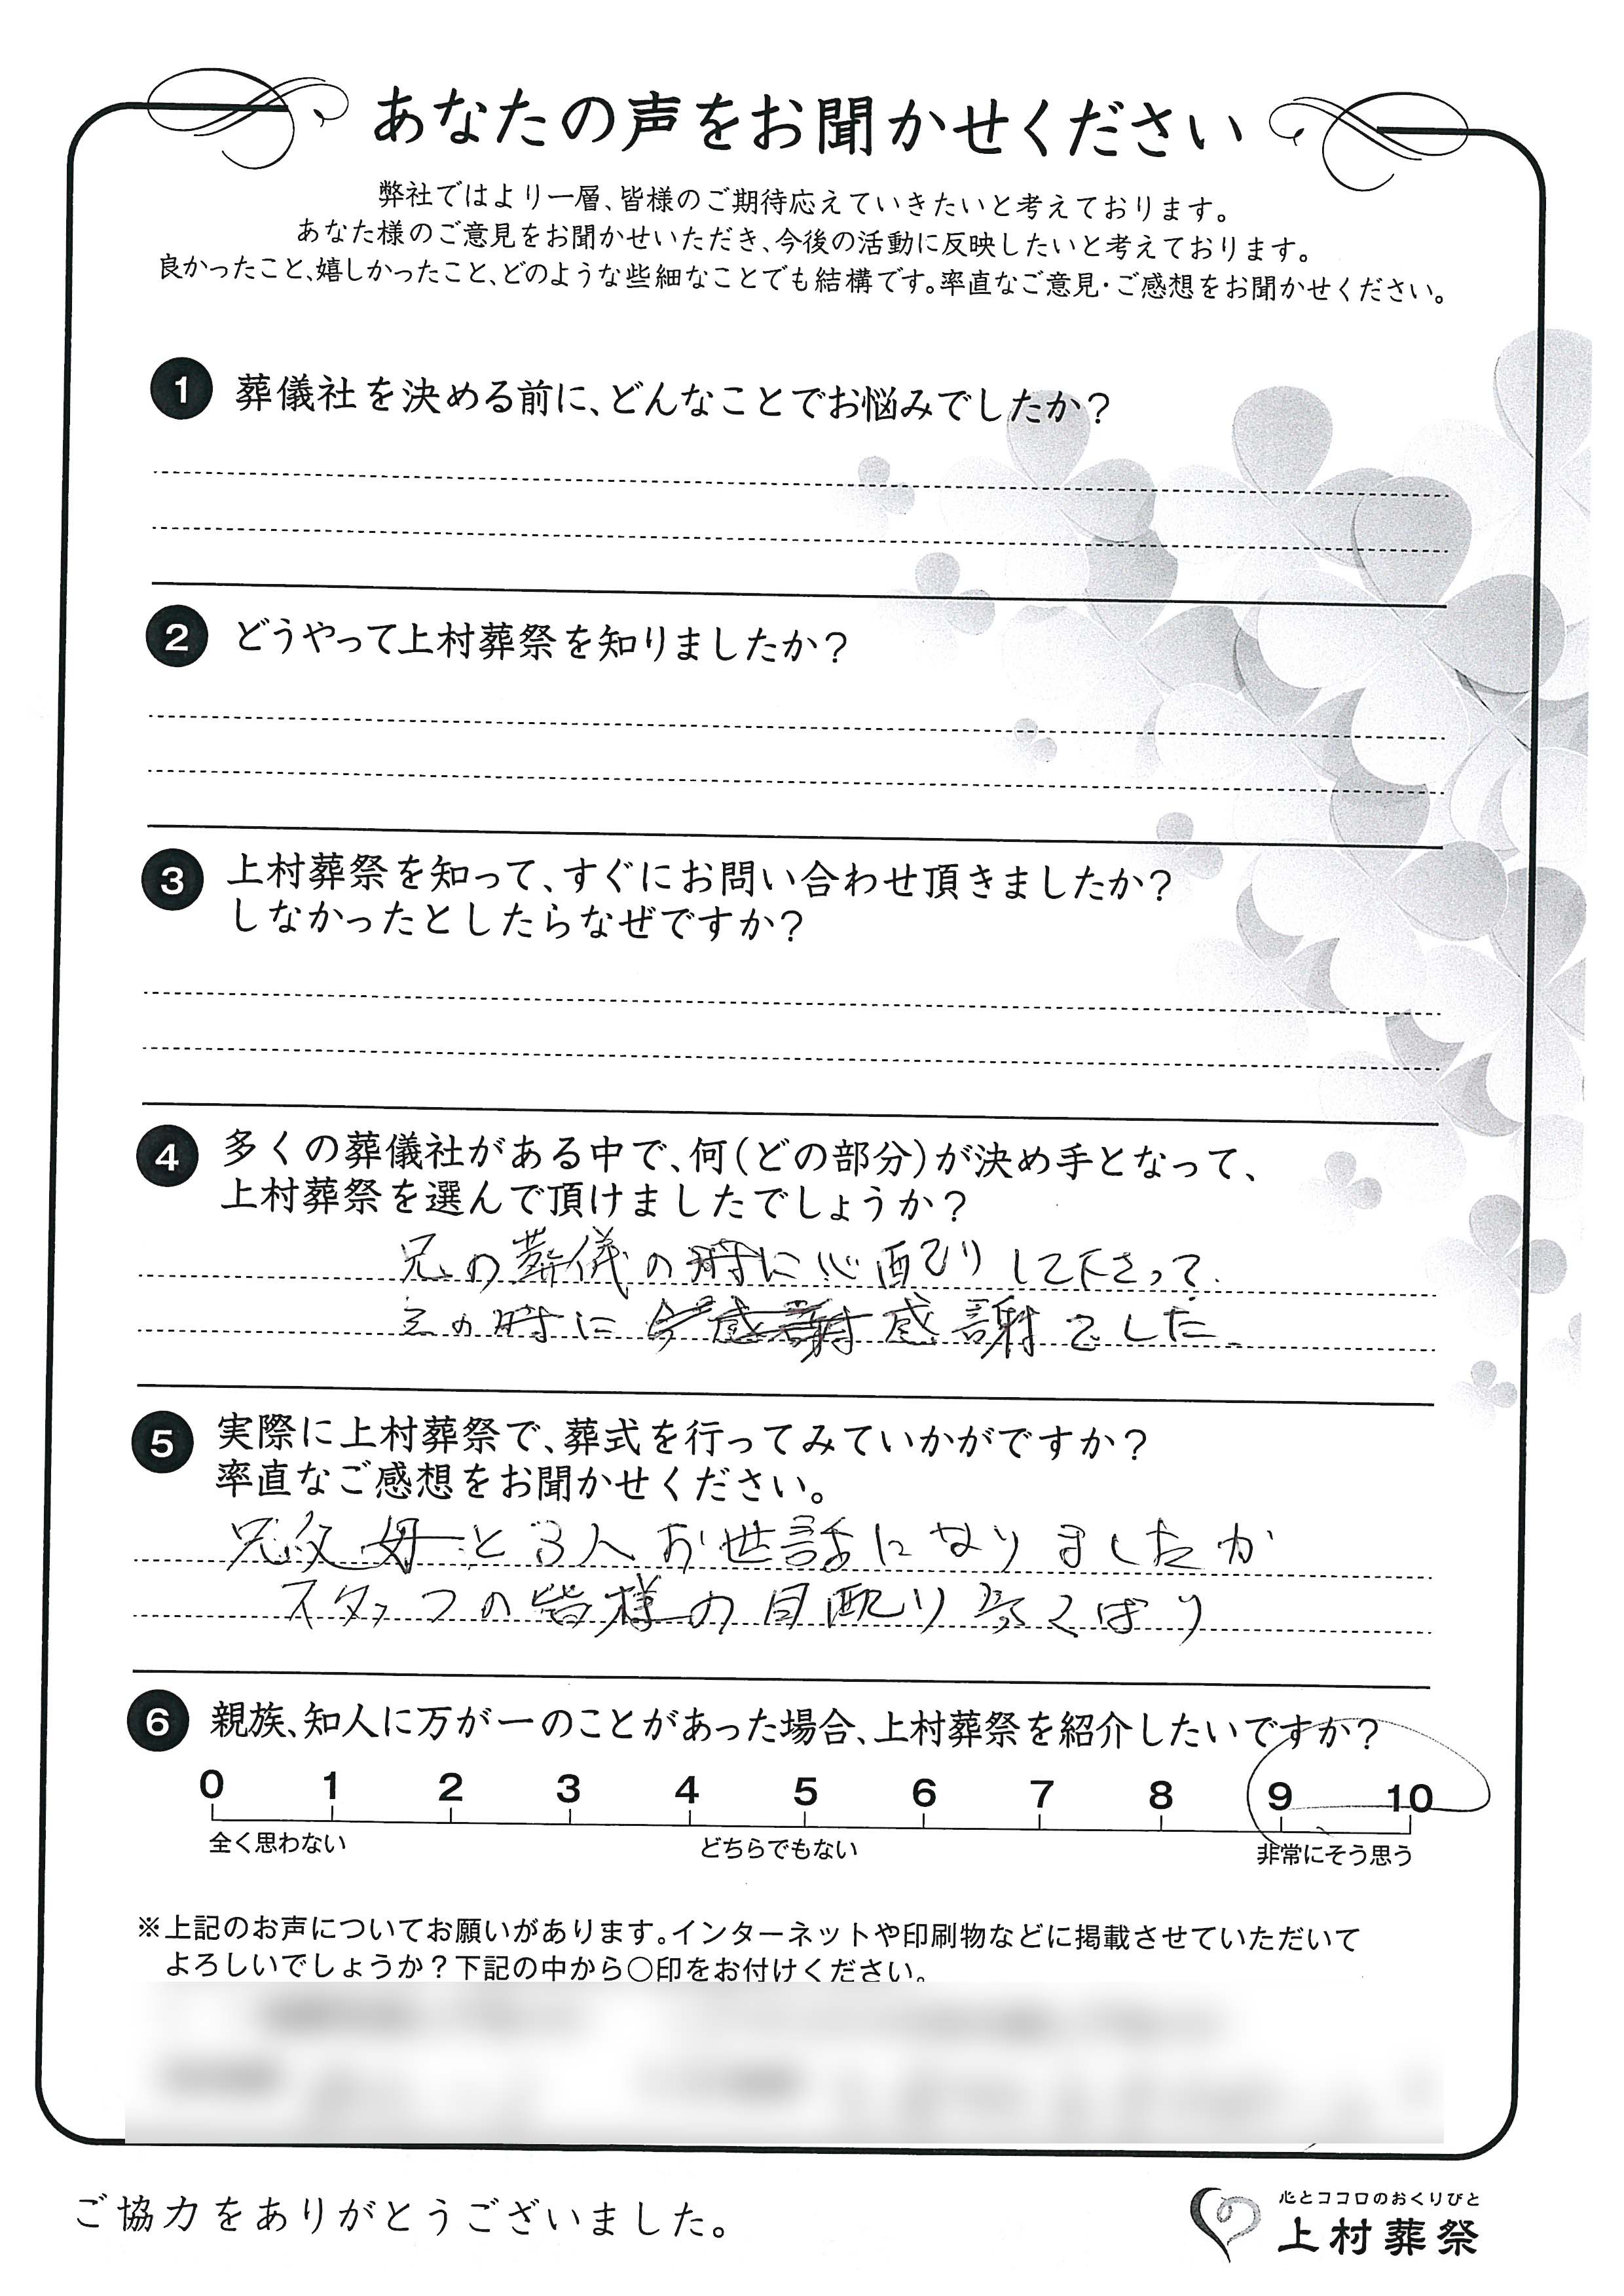 あなたの声をお聞かせください
弊社ではより一層、皆様のご期待応えていきたいと考えております。
あなた様のご意見をお聞かせいただき、今後の活動に反映したいと考えております。
良かったこと、嬉しかったこと、どのような些細なことでも結構です。率直なご意見・ご感想をお聞かせください。
1 葬儀社を決める前に、どんなことでお悩みでしたか?
2 どうやって上村葬祭を知りましたか?
3 上村葬祭を知って、すぐにお問い合わせ頂きましたか?
しなかったとしたらなぜですか?
4 多くの葬儀社がある中で、何(どの部分)が決め手となって、
上村葬祭を選んで頂けましたでしょうか?
兄の葬儀の時に心配りして下さって
その時に感謝でした
5 実際に上村葬祭で、葬式を行ってみていかがですか?
率直なご感想をお聞かせください。
兄父母と3人お世話になりましたが
スタッフの皆様の目配り気くばり
6 親族、知人に万が一のことがあった場合、上村葬祭を紹介したいですか?
0 1 2 3 4 5 6 7 8 9 10
全く思わない どちらでもない 非常にそう思う
※上記のお声についてお願いがあります。インターネットや印刷物などに掲載させていただいて
よろしいでしょうか?下記の中から○印をお付けください。
ご協力をありがとうございました。
心とココロのおくりびと
上村葬祭